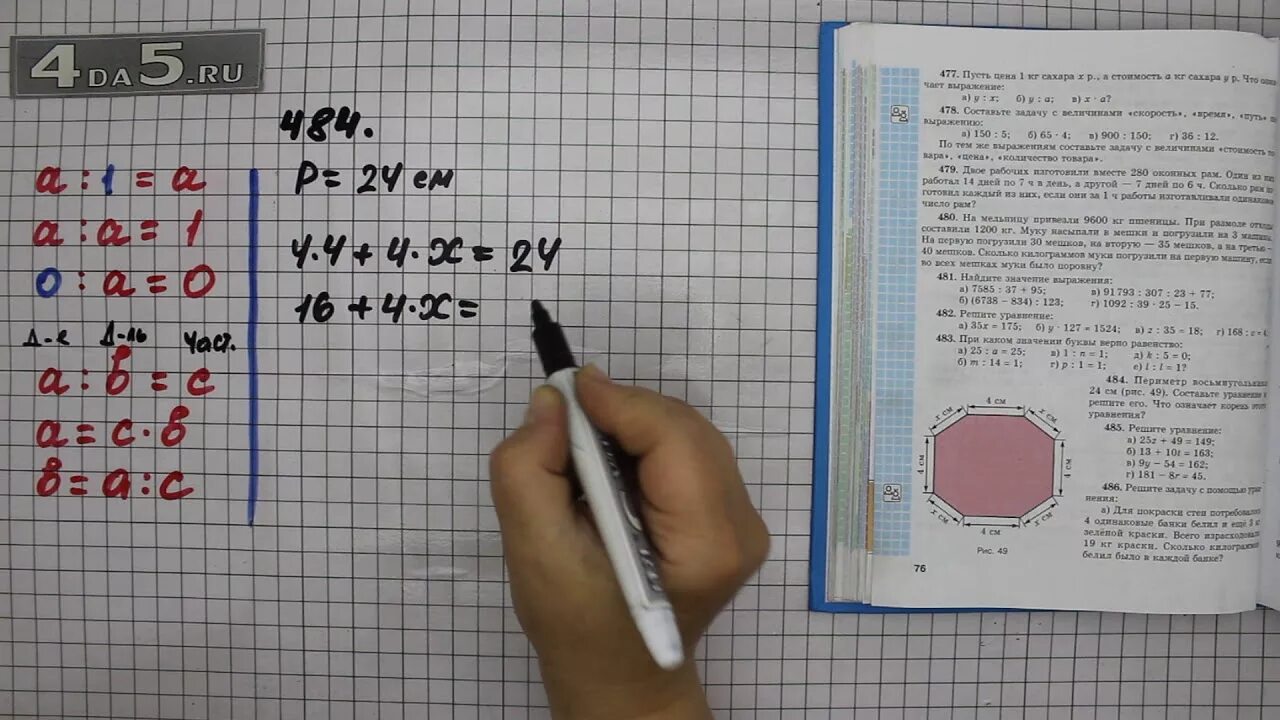 4DA5.RU
a : 1 = a
a : a = 1
0 : a = 0
Д-е Д-ль Част.
a : в = c
a = c · в
в = a : c
484.
P = 24 см
4·4 + 4·x = 24
16 + 4·x =
477. Пусть цена 1 кг сахара x р., а стоимость a кг сахара y р. Что
чает выражение:
а) y : x; б) y : a; в) x · a?
478. Составьте задачу с величинами «скорость», «время», «путь»
выражению:
а) 150 : 5; б) 65 · 4; в) 900 : 150; г) 36 : 12.
По тем же выражениям составьте задачу с величинами «стоимость
вара», «цена», «количество товара».
479. Двое рабочих изготовили вместе 280 оконных рам. Один из
работал 14 дней по 7 ч в день, а другой — 7 дней по 6 ч. Сколько рам
готовил каждый из них, если они за 1 ч работы изготавливали
число рам?
480. На мельницу привезли 9600 кг пшеницы. При размоле
составили 1200 кг. Муку насыпали в мешки и погрузили на 3
На первую погрузили 30 мешков, на вторую — 35 мешков, а на третью —
40 мешков. Сколько килограммов муки погрузили на первую машину, если
во всех мешках муки было поровну?
481. Найдите значение выражения:
а) 7585 : 37 + 95; в) 91 793 : 307 : 23 + 77;
б) (6738 – 834) : 123; г) 1092 : 39 · 25 – 15.
482. Решите уравнение:
а) 35x = 175; б) y · 127 = 1524; в) z : 35 = 18; г) 168 : c = 4.
483. При каком значении буквы верно равенство:
а) 25 : a = 25; в) 1 : n = 1; д) k : 5 = 0;
б) m : 14 = 1; г) p : 1 = 1; е) l : l = 1?
484. Периметр восьмиугольника
24 см (рис. 49). Составьте уравнение и
решите его. Что означает корень этого
уравнения?
485. Решите уравнение:
а) 25z + 49 = 149;
б) 13 + 10t = 163;
в) 9y – 54 = 162;
г) 181 – 8r = 45.
486. Решите задачу с помощью
нения:
а) Для покраски стен потребовалось
4 одинаковые банки белил и ещё 3 кг
зелёной краски. Всего израсходовали
19 кг краски. Сколько килограммов
белил было в каждой банке?
4 см
x см
x см
4 см
4 см
x см
x см
4 см
Рис. 49
76